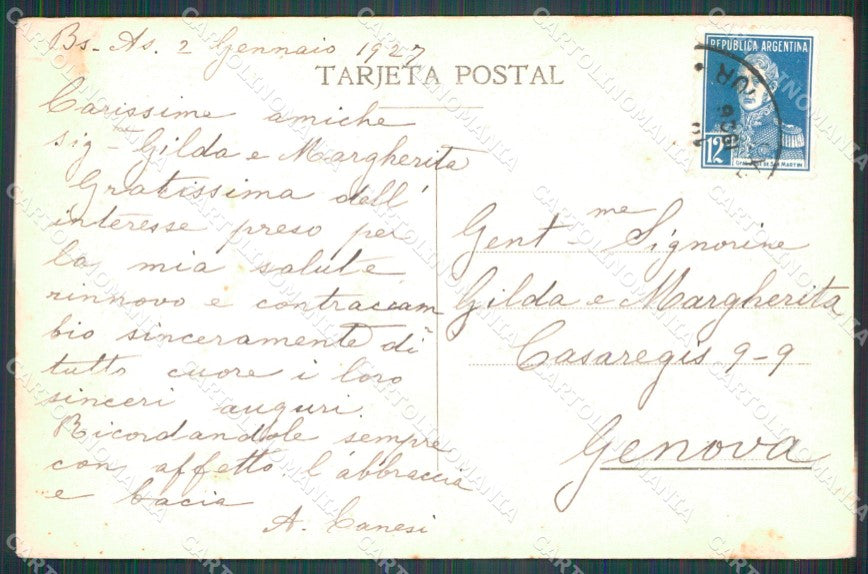 Bs-As. 2 Gennaio 1927
TARJETA POSTAL
Carissime amiche
sig-ne Gilda e Margherita
Gratissima dell'
interesse preso per
la mia salute
rinnovo e contraccam
bio sinceramente di
tutto cuore i loro
sinceri auguri.
Ricordandole sempre
con affetto l'abbraccia
e bacia
A. Canesi
REPUBLICA ARGENTINA
12
Gent-me Signorine
Gilda e Margherita
Casaregis 9-9
Genova
CARTOLINOMANIA